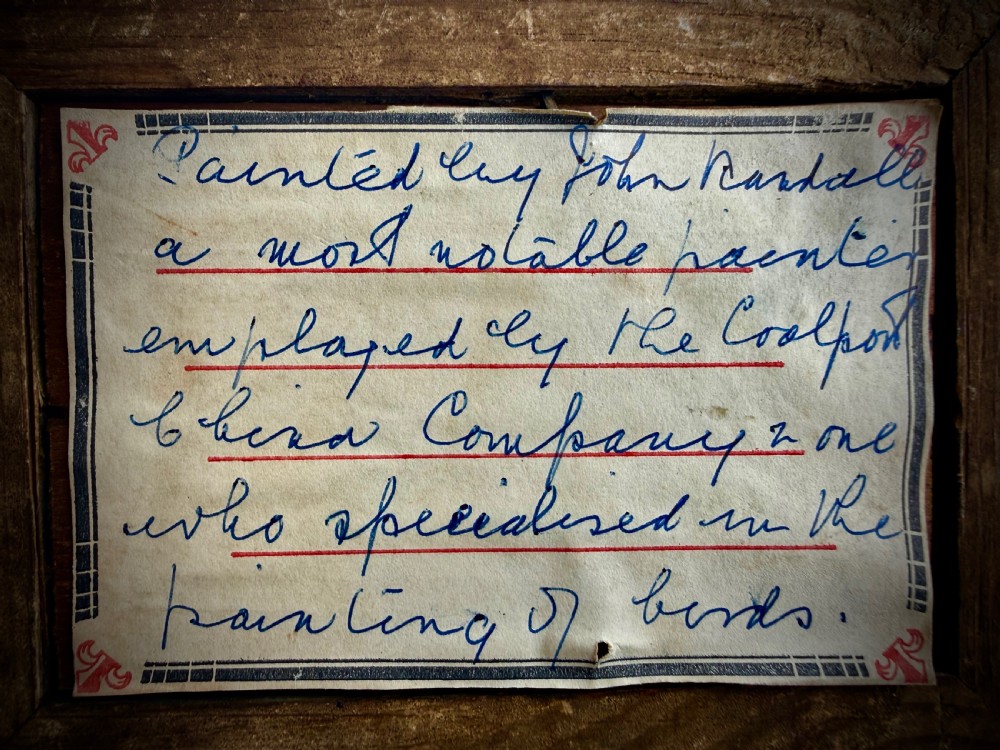 Painted by John Randall
a most notable painter
employed by the Coalport
China Company & one
who specialised in the
painting of birds.